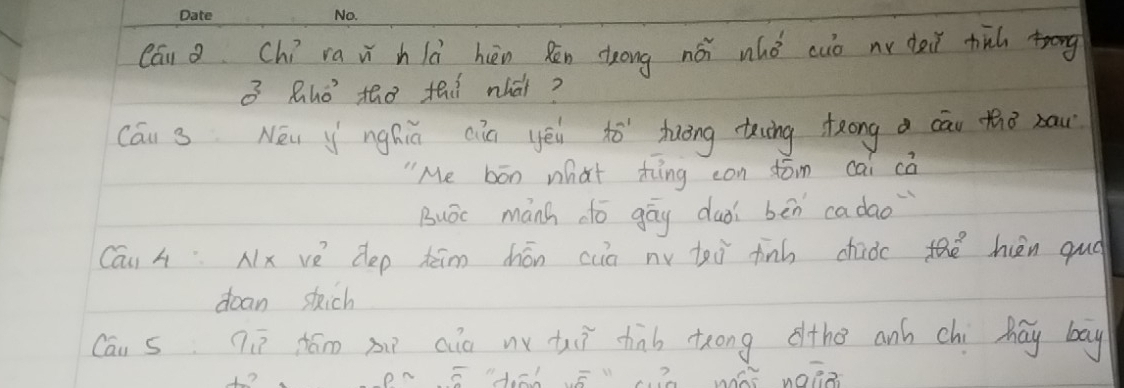 Date No.
Câu 2. Chỉ ra h hiện lên trong nỗi nhớ của nv trữ tình trong
ở khổ thơ thứ nhất ?
Câu 3 : Nêu ý nghĩa của yếu tố tượng trưng trong 2 câu thơ sau:
"Mẹ bòn nhặt từng con tôm cái cá
Buộc mảnh đò gãy dưới bến ca dao"
Câu 4 : Nx vẻ đẹp tâm hồn của nv trữ tình được thể hiện qua
đoạn trích
Câu 5 . Từ tâm sự của nv trữ tình trong đthơ anh chị hãy bày